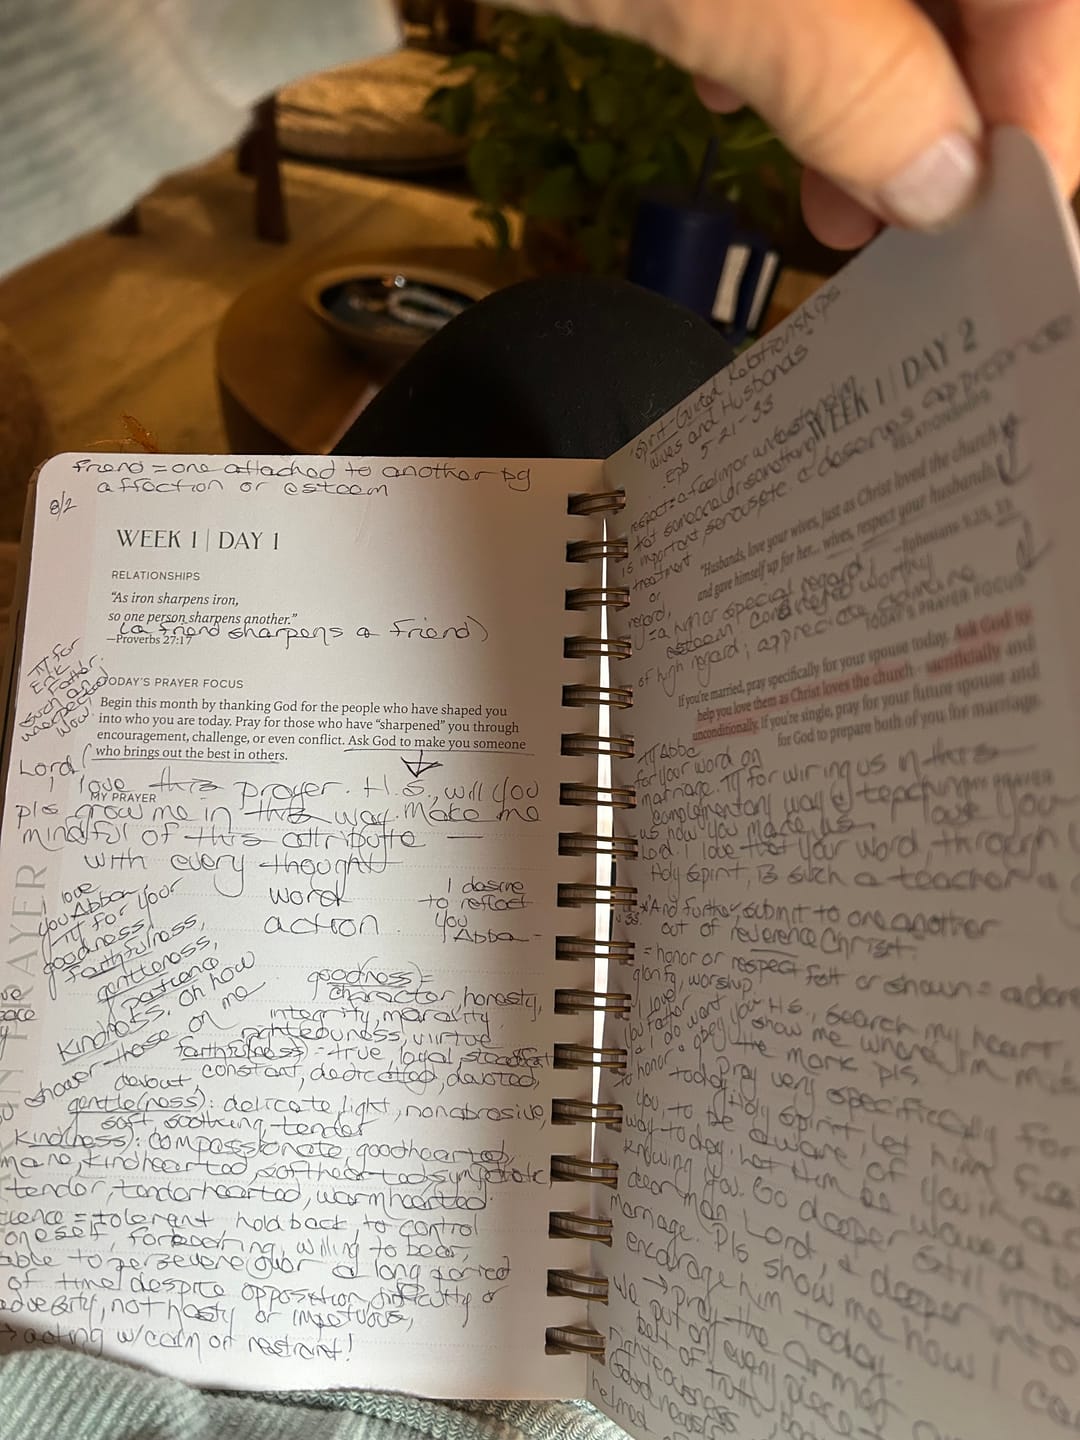 friend = one attached to another by
affection or esteem
8/2
WEEK 1 | DAY 1
RELATIONSHIPS
"As iron sharpens iron,
so one person sharpens another."
(a friend sharpens a friend)
—Proverbs 27:17
TODAY'S PRAYER FOCUS
Begin this month by thanking God for the people who have shaped you
into who you are today. Pray for those who have "sharpened" you through
encouragement, challenge, or even conflict. Ask God to make you someone
who brings out the best in others.
Lord, I love this prayer. H.S., will you
MY PRAYER
pls grow me in this way. Make me
mindful of this attribute —
with every thought
word
action.
I desire
to reflect
you
Abba-
I love
you Abba
for your
goodness,
faithfulness,
gentleness,
patience
Kindness. Oh how
shower those on me
good(ness) =
character, honesty,
integrity, morality
righteousness, virtue
faithful(ness) = true, loyal, steadfast
constant, dedicated, devoted,
devout
gentle(ness): delicate, light, nonabrasive,
soft, soothing, tender
Kind(ness): compassionate, goodhearted,
kindhearted, softhearted, sympathetic,
tender, tenderhearted, warmhearted
= tolerant, hold back to control
oneself, forbearing, willing to bear,
able to persevere over a long period
of time despite opposition, difficulty or
adversity, not hasty or impetuous,
→ acting w/calm or restraint!
PRAYER
Spirit-Guided Relationships
Wives and Husbands"
Eph 5-21-33
WEEK 1 | DAY 2
RELATIONSHIPS
respect = a feeling or understanding
that someone or something
is important, serious, etc. & deserves appropriate
treatment
or
regard,
= a high or special regard
esteem; considered worthy
of high regard; appreciate, admire
"Husbands, love your wives, just as Christ loved the church
and gave himself up for her... wives, respect your husbands.
—Ephesians 5:25, 33
TODAY'S PRAYER FOCUS
If you're married, pray specifically for your spouse today. Ask God to
help you love them as Christ loves the church - sacrificially and
unconditionally. If you're single, pray for your future spouse and
for God to prepare both of you for marriage.
MY PRAYER
Abba
for your word on
marriage. for wiring us in this
complementary way & teaching
us how you made us. I love you
Lord. I love that your word, through
Holy Spirit, is such a teacher
"And further, submit to one another
out of reverence Christ."
= honor or respect felt or shown =
glorify, worship
I love
you Father
& I do want
to honor & obey you H.S., search my heart
show me where I'm
the mark pls.
today. Pray very specifically for
you, Holy Spirit, let him
to be aware of you in
way today. Let them be wowed
knowing you. Go deeper still
dear man Lord, & deeper
marriage. Pls show me how I
encourage him today.
→ Pray the armor
we put on every piece
belt of truth
righteousness
Good news
helmet